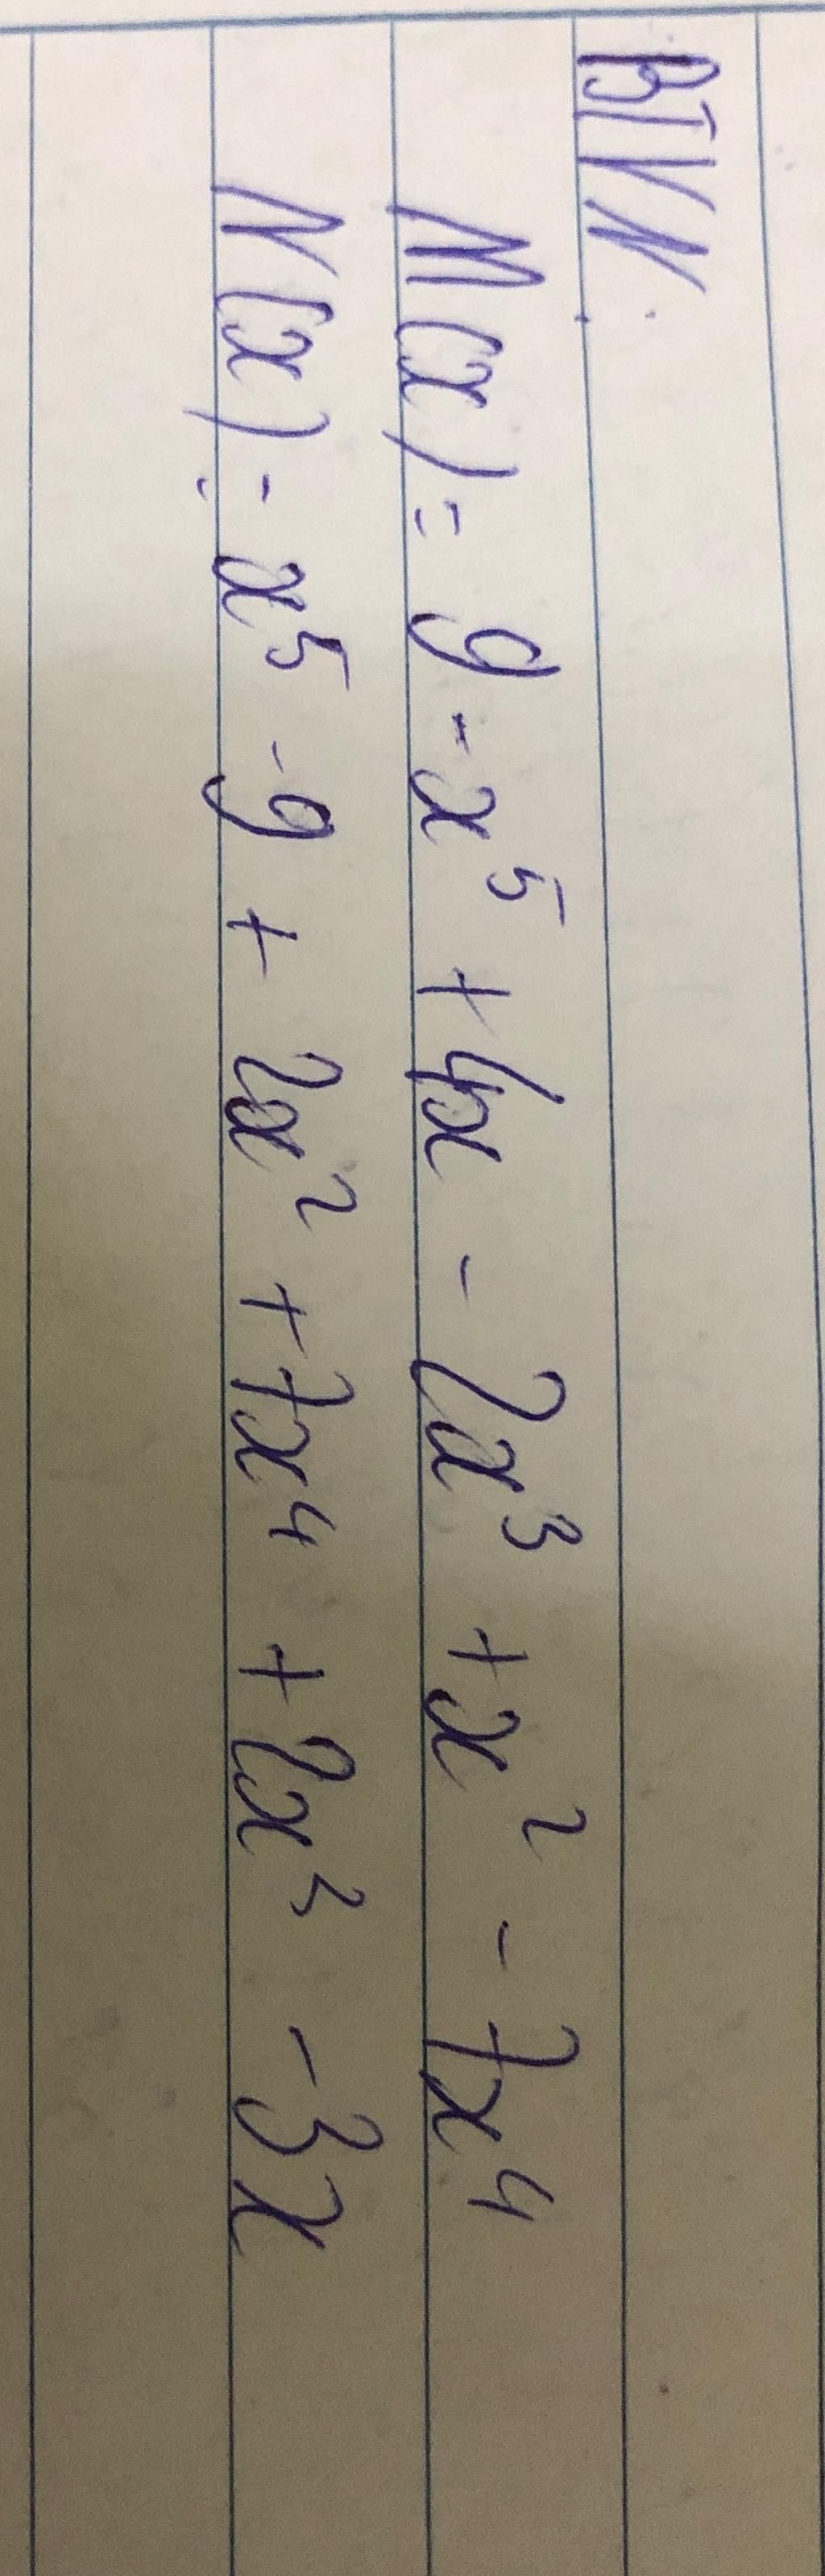 BTVN:
M(x) = 9 - x⁵ + 4x - 2x³ + x² - 7x⁴
N(x) = x⁵ - 9 + 2x² + 7x⁴ + 2x³ - 3x